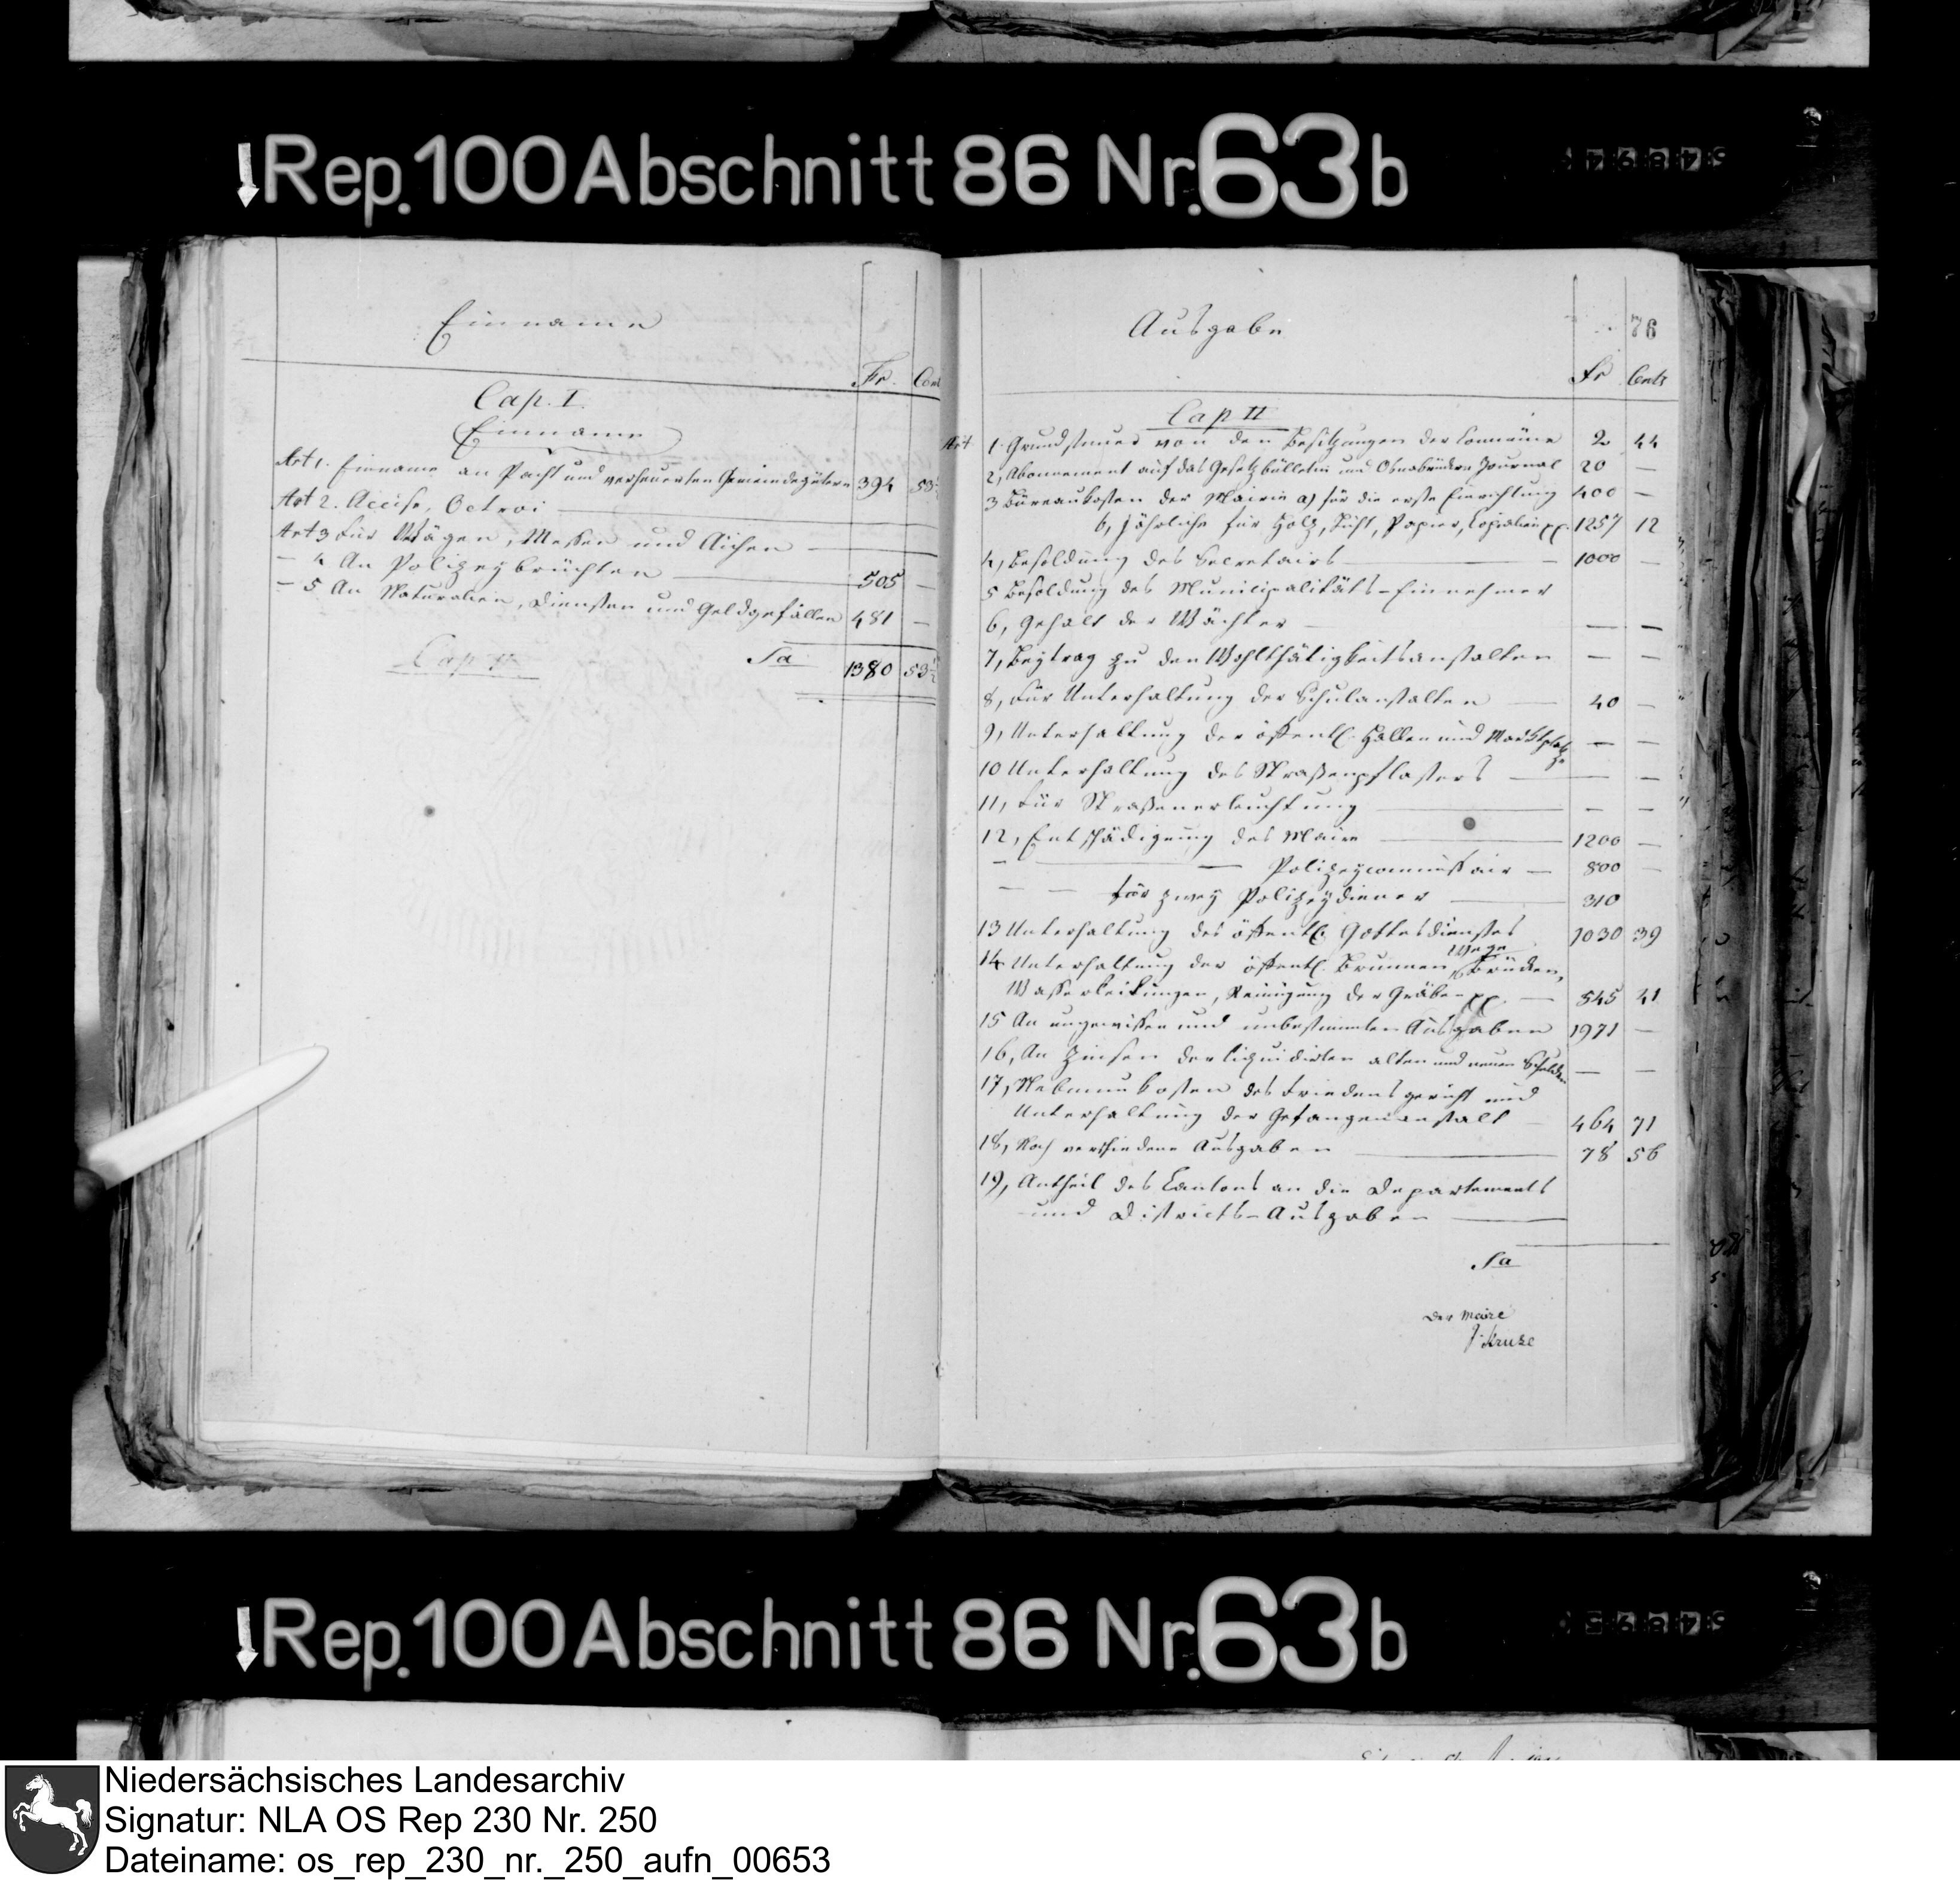 Rep. 100 Abschnitt 86 Nr. 63b
Einname
Fr. Cent
Cap. I.
Einname
Art 1. Einname an Pacht und verheuerten Gemeindegütern 394 53
Art 2. Accise, Octroi
Art 3 Für Wägen, Messen und Aichen
– 4 An Polizeybrüchten 505 –
– 5 An Naturalien, Diensten und Geldgefällen 481 –
Sa 1380 53½
Cap II
Ausgabe
76
Fr Cents
Cap II
Art 1. Grundsteuer von den Besitzungen der Commüne 2 44
2, Abonnement auf das Gesetzbülletin und Osnabrücker Journal 20 –
3 Büreaukosten der Mairie a) für die erste Einrichtung 400 –
b, Jährliche für Holz, Licht, Papier, Copialien pp. 1257 12
4, Besoldung des Secretairs 1000 –
5 Besoldung des Municipalitäts-Einnehmer
6, Gehalt der Wächter – –
7, Beytrag zu den Wohlthätigkeitsanstalten – –
8, Für Unterhaltung der Schulanstalten 40 –
9, Unterhaltung der öffentl. Hallen und Marktplätze – –
10 Unterhaltung des Straßenpflasters – –
11, Für Straßenerleuchtung – –
12, Entschädigung des Maire 1200 –
– – Polizeycommissair – 800 –
– – für zwey Polizeydiener 310
13 Unterhaltung des öffentl. Gottesdienstes 1030 39
14 Unterhaltung der öffentl. Brunnen, Wege Brücken,
Wasserleitungen, Reinigung der Gräben pp. – 545 41
15 An ungewissen und unbestimmten Ausgaben 1971 –
16, An Zinsen der liquidirten alten und neuen Schulden – –
17, Nebenunkosten des Friedensgericht und
Unterhaltung der Gefangenanstalt 464 71
18, Noch verschiedene Ausgaben 78 56
19, Antheil des Cantons an die Departements
und Districts-Ausgaben
Sa
Der Maire
J. Kruse
Rep. 100 Abschnitt 86 Nr. 63b
Niedersächsisches Landesarchiv
Signatur: NLA OS Rep 230 Nr. 250
Dateiname: os_rep_230_nr._250_aufn_00653